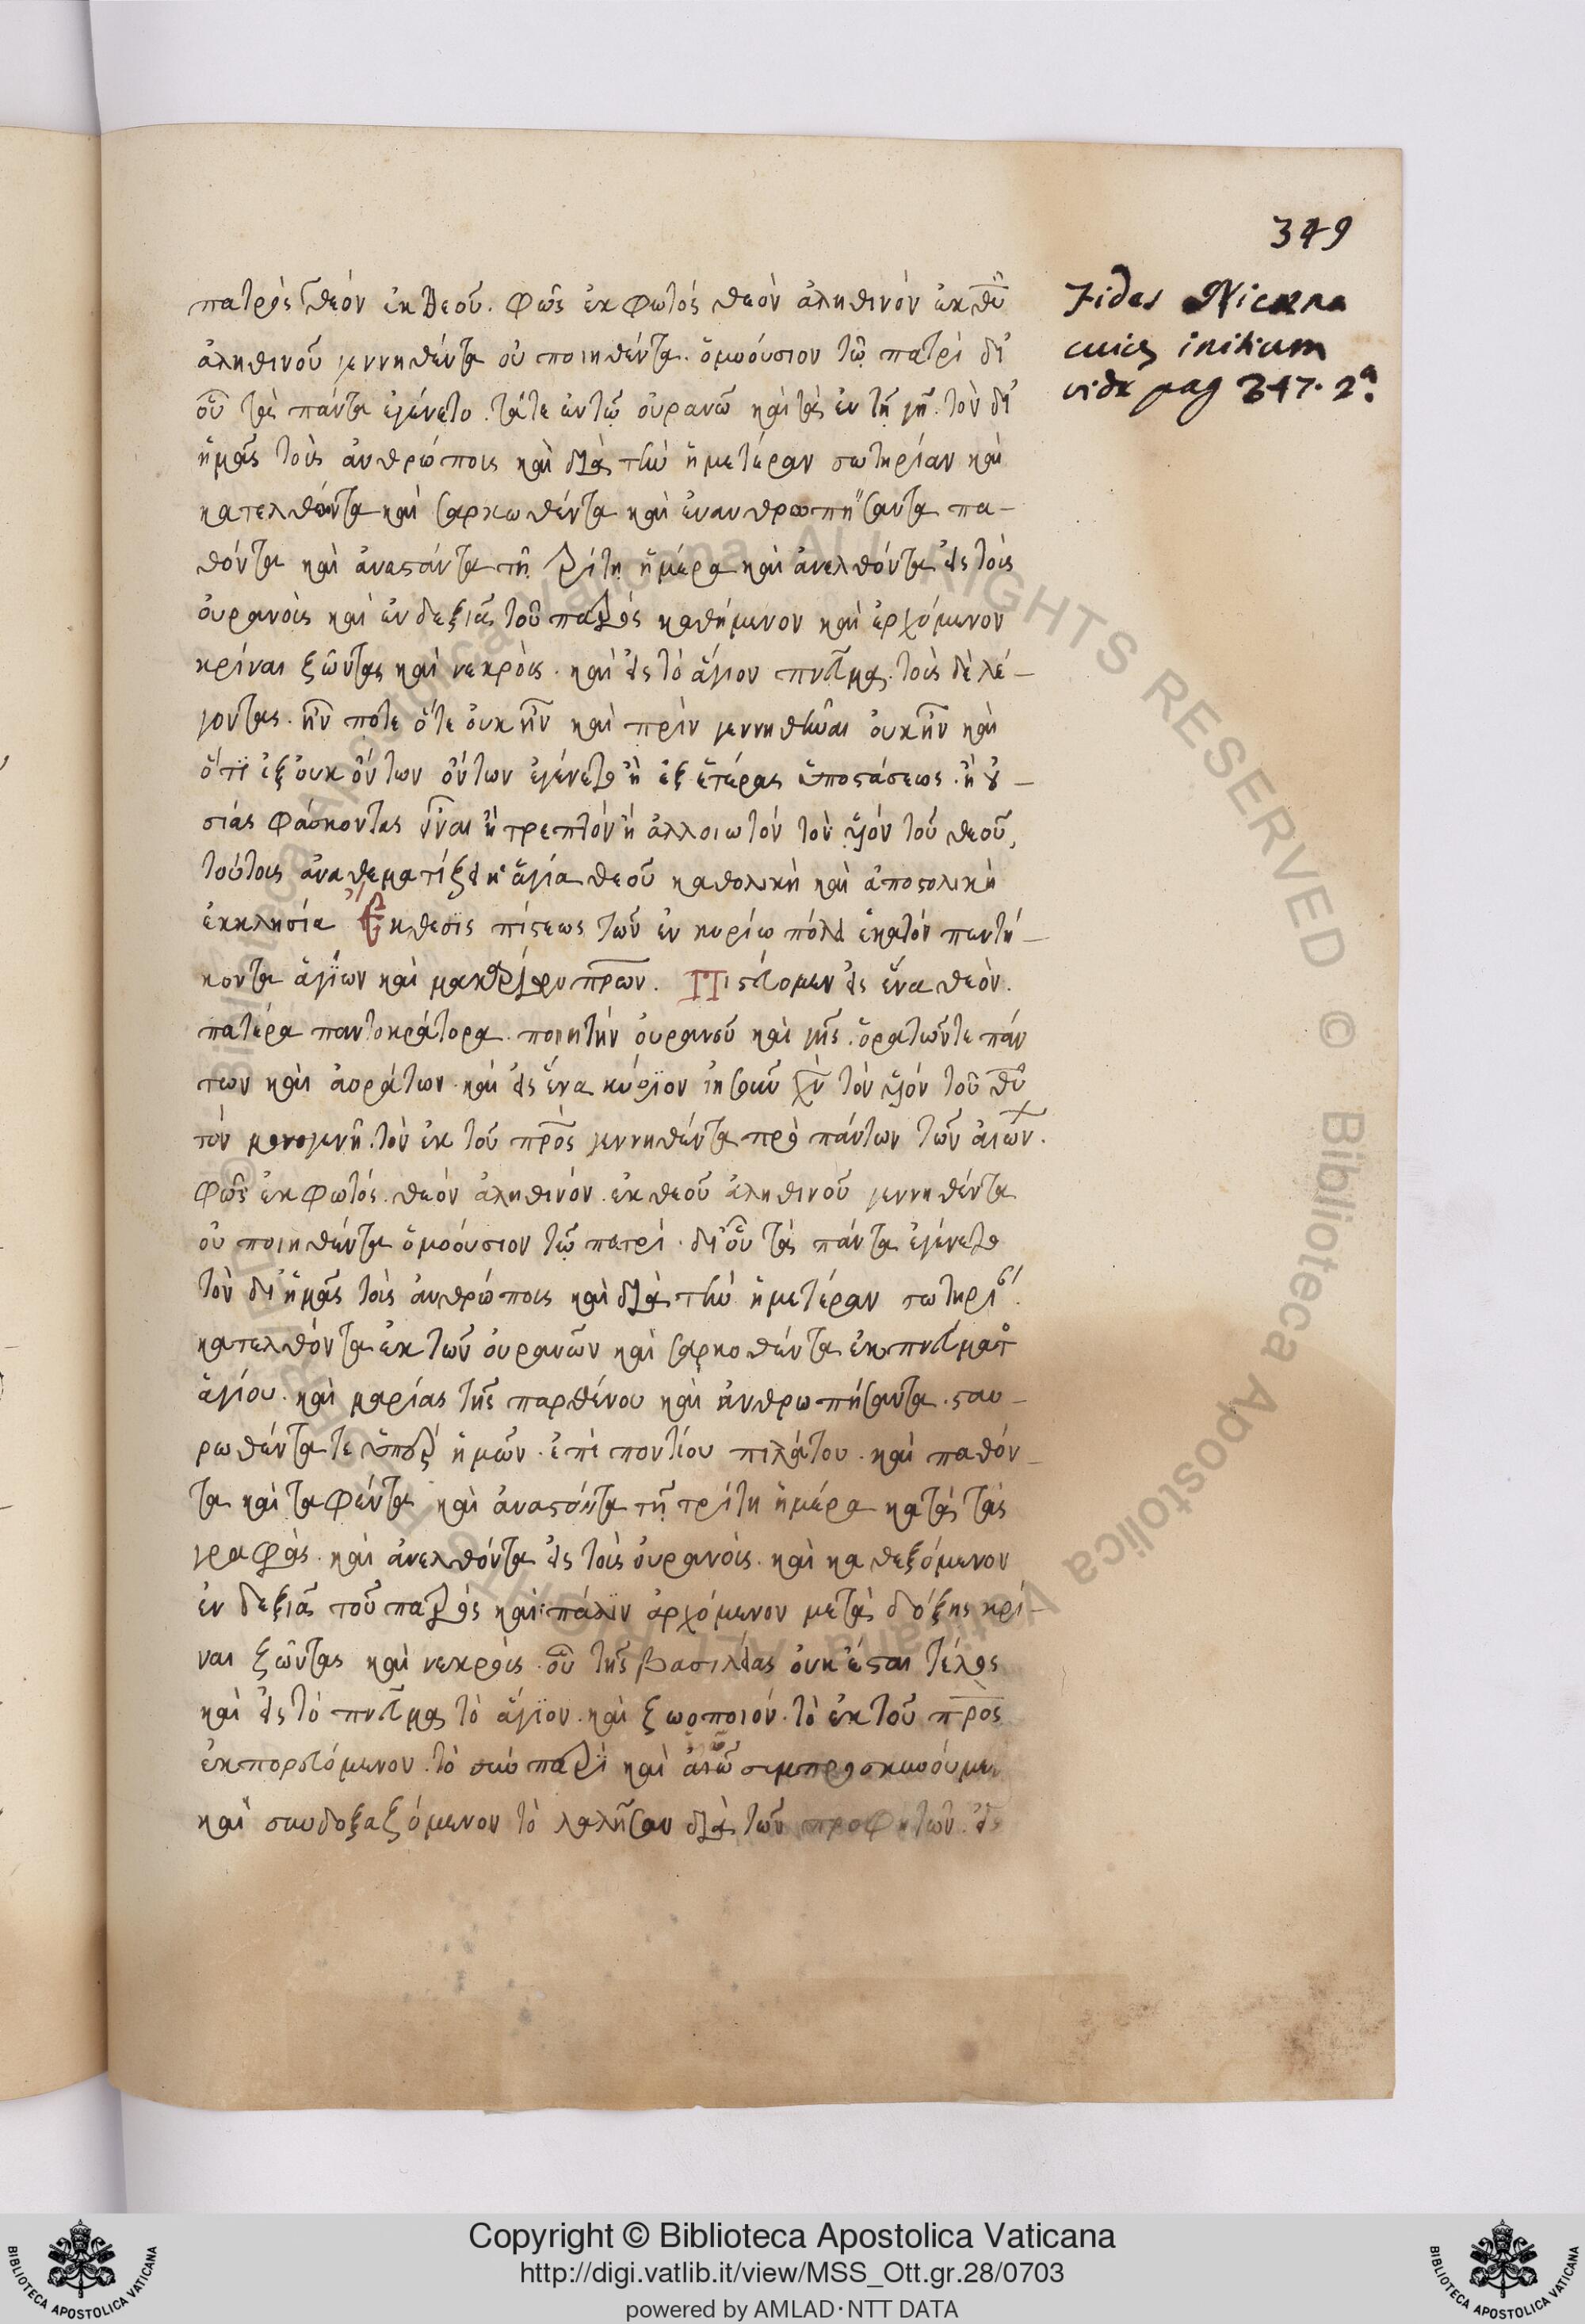 349
Fides Nicæna
cuius initium
vide pag 347. 2ª.
πατρὸς θεόν ἐκ θεοῦ. φῶς ἐκ φωτός θεὸν ἀληθινόν ἐκ θυ
ἀληθινοῦ γεννηθέντα οὐ ποιηθέντα. ὁμοούσιον τῶ πατρὶ δι᾽
οὗ τὰ πάντα ἐγένετο. τάτε ἐν τῶ οὐρανῶ καὶ τὰ ἐν τῆ γῆ. τὸν δι᾽
ἡμᾶς τοὺς ἀνθρώπους καὶ διὰ τὴν ἡμετέραν σωτηρίαν καὶ
κατελθόντα καὶ σαρκωθέντα καὶ ἐνανθρωπήσαντα πα-
θόντα καὶ ἀναστάντα τῆ τρίτη ἡμέρα καὶ ἀνελθόντα εἰς τοὺς
οὐρανοὺς καὶ ἐν δεξιᾶ τοῦ πατρὸς καθήμενον καὶ ἐρχόμενον
κρίναι ζῶντας καὶ νεκρούς. καὶ εἰς τὸ ἅγιον πνεῦμα. τοὺς δὲ λέ-
γοντας. ἦν ποτε ὅτε οὐκ ἦν καὶ πρὶν γεννηθῆναι οὐκ ἦν καὶ
ὅτι ἐξ οὐκ ὄντων ὄντων ἐγένετο ἢ ἐξ ἑτέρας ὑποστάσεως. ἢ οὐ-
σίας φάσκοντας εἶναι ἢ τρεπτόν ἢ ἀλλοιωτόν τὸν υἱόν τοῦ θεοῦ,
τούτους ἀναθεματίζει ἡ ἁγία θεοῦ καθολικὴ καὶ ἀποστολικὴ
ἐκκλησία Ἔκθεσις πίστεως τῶν ἐν κυρίω πόλει ἑκατόν πεντή-
κοντα ἁγίων καὶ μακαρίων πρων. Πιστεύομεν εἰς ἕνα θεόν.
πατέρα παντοκράτορα. ποιητήν οὐρανοῦ καὶ γῆς. ὁρατῶντε πάν
των καὶ ἀοράτων. καὶ εἰς ἕνα κύριον ἰησοῦν χν τὸν υἱόν τοῦ θυ
τόν μονογενῆ. τὸν ἐκ τοῦ προς γεννηθέντα πρὸ πάντων τῶν αἰων.
φῶς ἐκ φωτός. θεόν ἀληθινόν. ἐκ θεοῦ ἀληθινοῦ γεννηθέντα
οὐ ποιηθέντα ὁμοούσιον τῶ πατρί. δι᾽ οὗ τὰ πάντα ἐγένετο
τὸν δι᾽ ἡμᾶς τοὺς ἀνθρώπους καὶ διὰ τὴν ἡμετέραν σωτηρί.
κατελθόντα ἐκ τῶν οὐρανῶν καὶ σαρκοθέντα ἐκ πνεύματ
ἁγίου. καὶ μαρίας τῆς παρθένου καὶ ἠνθρωπήσαντα. σταυ-
ρωθέντα τε ὑπὲρ ἡμῶν. ἐπὶ ποντίου πιλάτου. καὶ παθόν-
τα καὶ ταφέντα καὶ ἀναστάντα τῆ τρίτη ἡμέρα κατὰ τὰς
γραφὰς. καὶ ἀνελθόντα εἰς τοὺς οὐρανοὺς. καὶ καθεζόμενον
ἐν δεξιᾶ τοῦ πατρὸς καὶ πάλιν ἐρχόμενον μετὰ δόξης κρί-
ναι ζῶντας καὶ νεκροὺς. οὗ τῆς βασιλείας οὐκ ἔσται τέλος
καὶ εἰς τὸ πνεῦμα τὸ ἅγιον. καὶ ζωοποιόν. τὸ ἐκ τοῦ προς
ἐκπορευόμενον. τὸ σὺν πατρὶ καὶ συμπροσκυνούμεν
καὶ συνδοξαζόμενον τὸ λαλῆσαν διὰ τῶν προφητῶν. εἰς
Copyright © Biblioteca Apostolica Vaticana
http://digi.vatlib.it/view/MSS_Ott.gr.28/0703
powered by AMLAD·NTT DATA
BIBLIOTECA APOSTOLICA VATICANA
BIBLIOTECA APOSTOLICA VATICANA